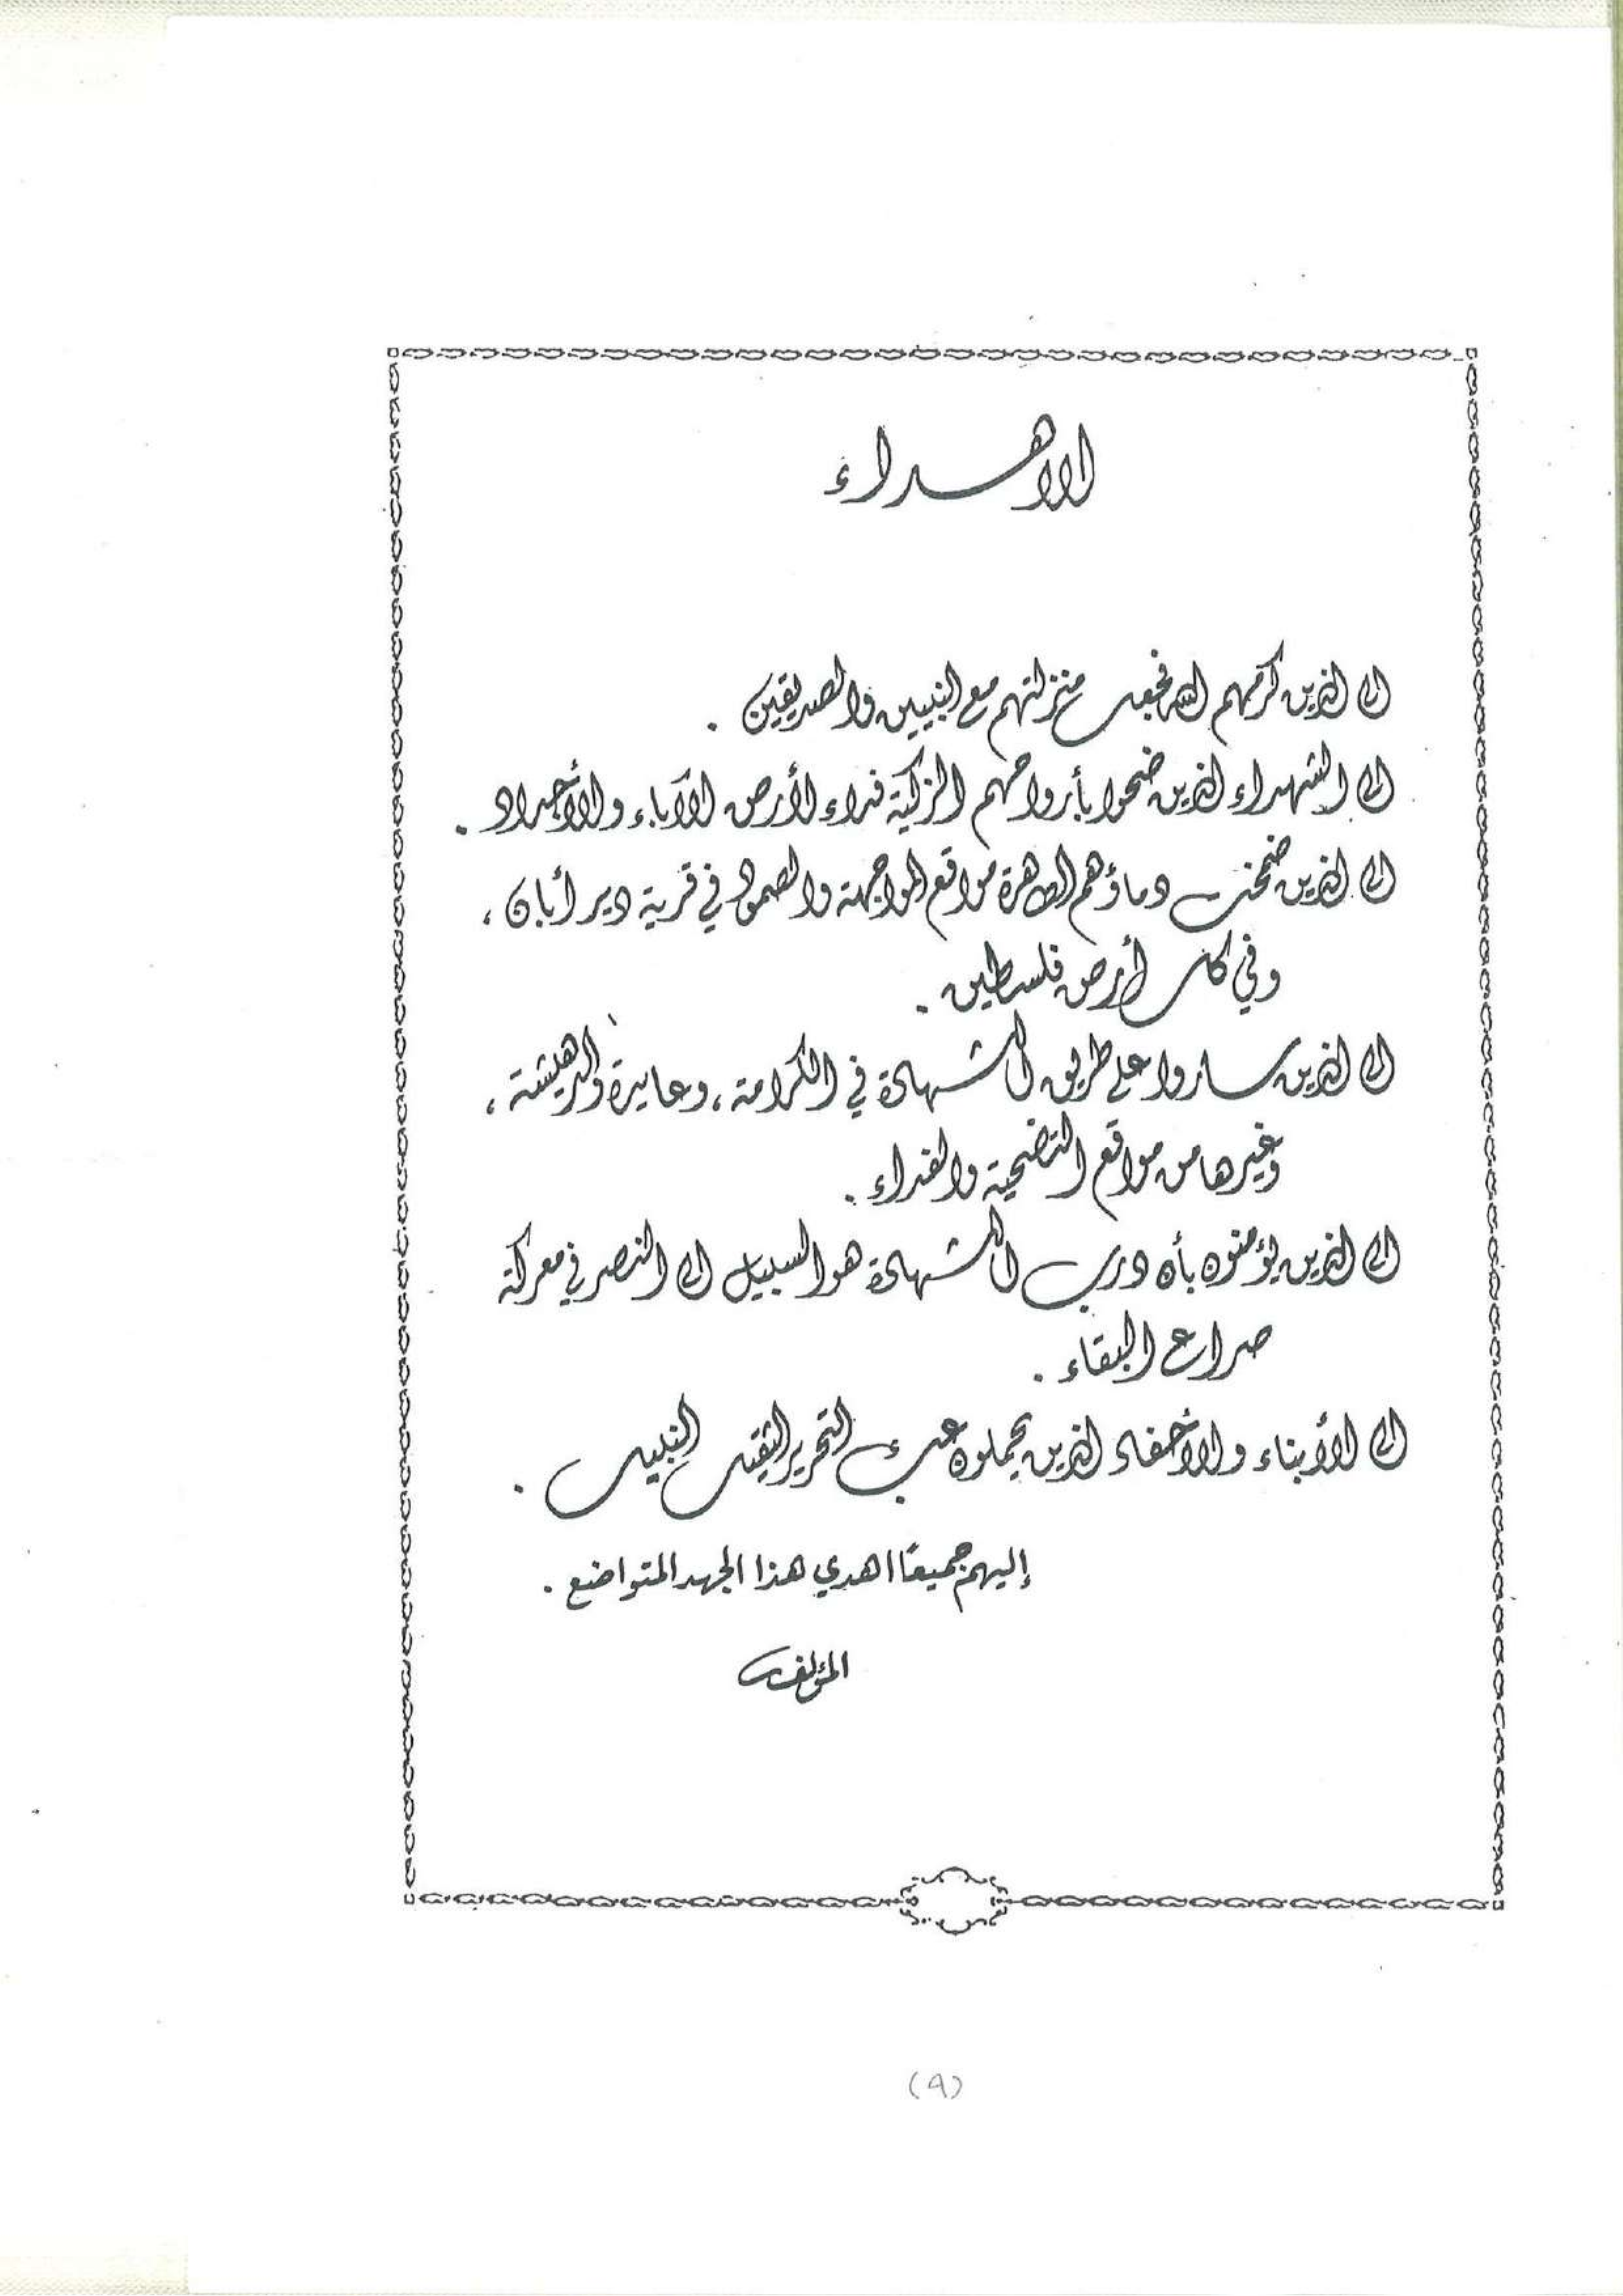 الاهداء
الى الذين كرمهم الله فجعل منزلتهم مع النبيين والصديقين .
الى الشهداء الذين ضحوا بأرواحهم الزكية فداء لأرض الآباء والأجداد .
الى الذين ضمخت دماؤهم الطاهرة مواقع المواجهة والصمود في قرية دير أبان ،
وفي كل أرض فلسطين .
الى الذين ساروا على طريق الشهادة في الكرامة ، وعايدة والدهيشة ،
وغيرها من مواقع التضحية والفداء .
الى الذين يؤمنون بأن درب الشهادة هو السبيل الى النصر في معركة
صراع البقاء .
الى الأبناء والأحفاد الذين يحملون عبء التحرير الثقيل النبيل .
إليهم جميعًا اهدي هذا الجهد المتواضع .
المؤلف
(٩)